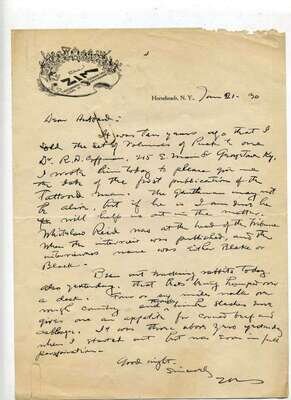 ZIM
Horseheads, N.Y., Jan 21 - 30
Dear Hubbard:
It was ten years ago that I
sold the set of volumes of Puck to one
Dr. R. A. Coffman, 215 E Main St Georgetown Ky,
I wrote him today to please give me
the date of the first publication of the
Tattooed man. The gentleman may not
be alive, but if he is I am sure he
will help us out in the matter.
Whitelaw Reid was at the head of the Tribune
when the interview was published, and the
interviewers name was either Blake or
Black.
Been out hunting rabbits today
also yesterday. that dog being
a deck. Four or miles walk on
rough country
gives one an appetite for corned beef and
cabbage. It was three above zero yesterday
when I started out but was soon in full
perspiration.
Good night.
Sincerely
Zim